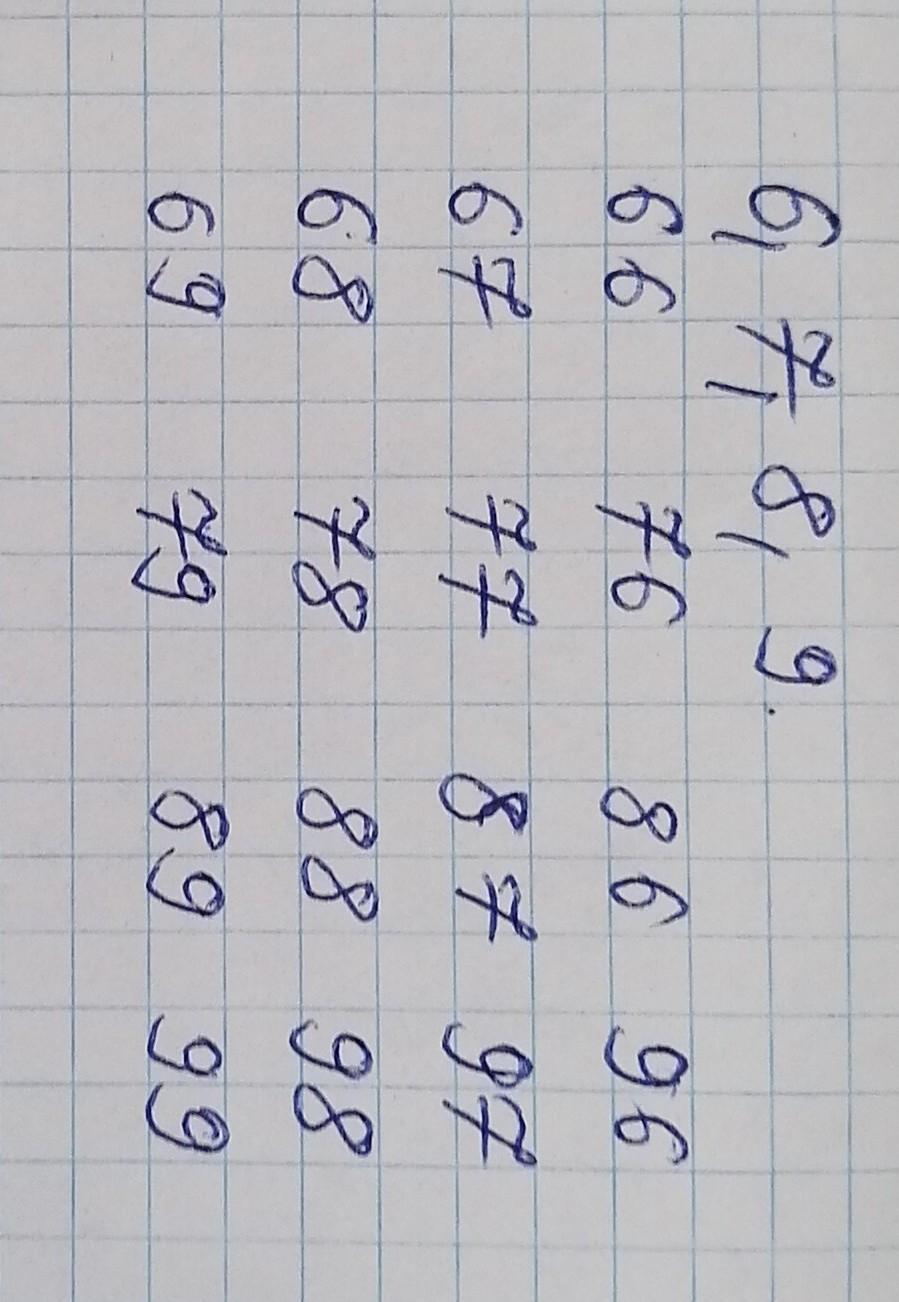 6, 7, 8, 9.
66 76 86 96
67 77 87 97
68 78 88 98
69 79 89 99